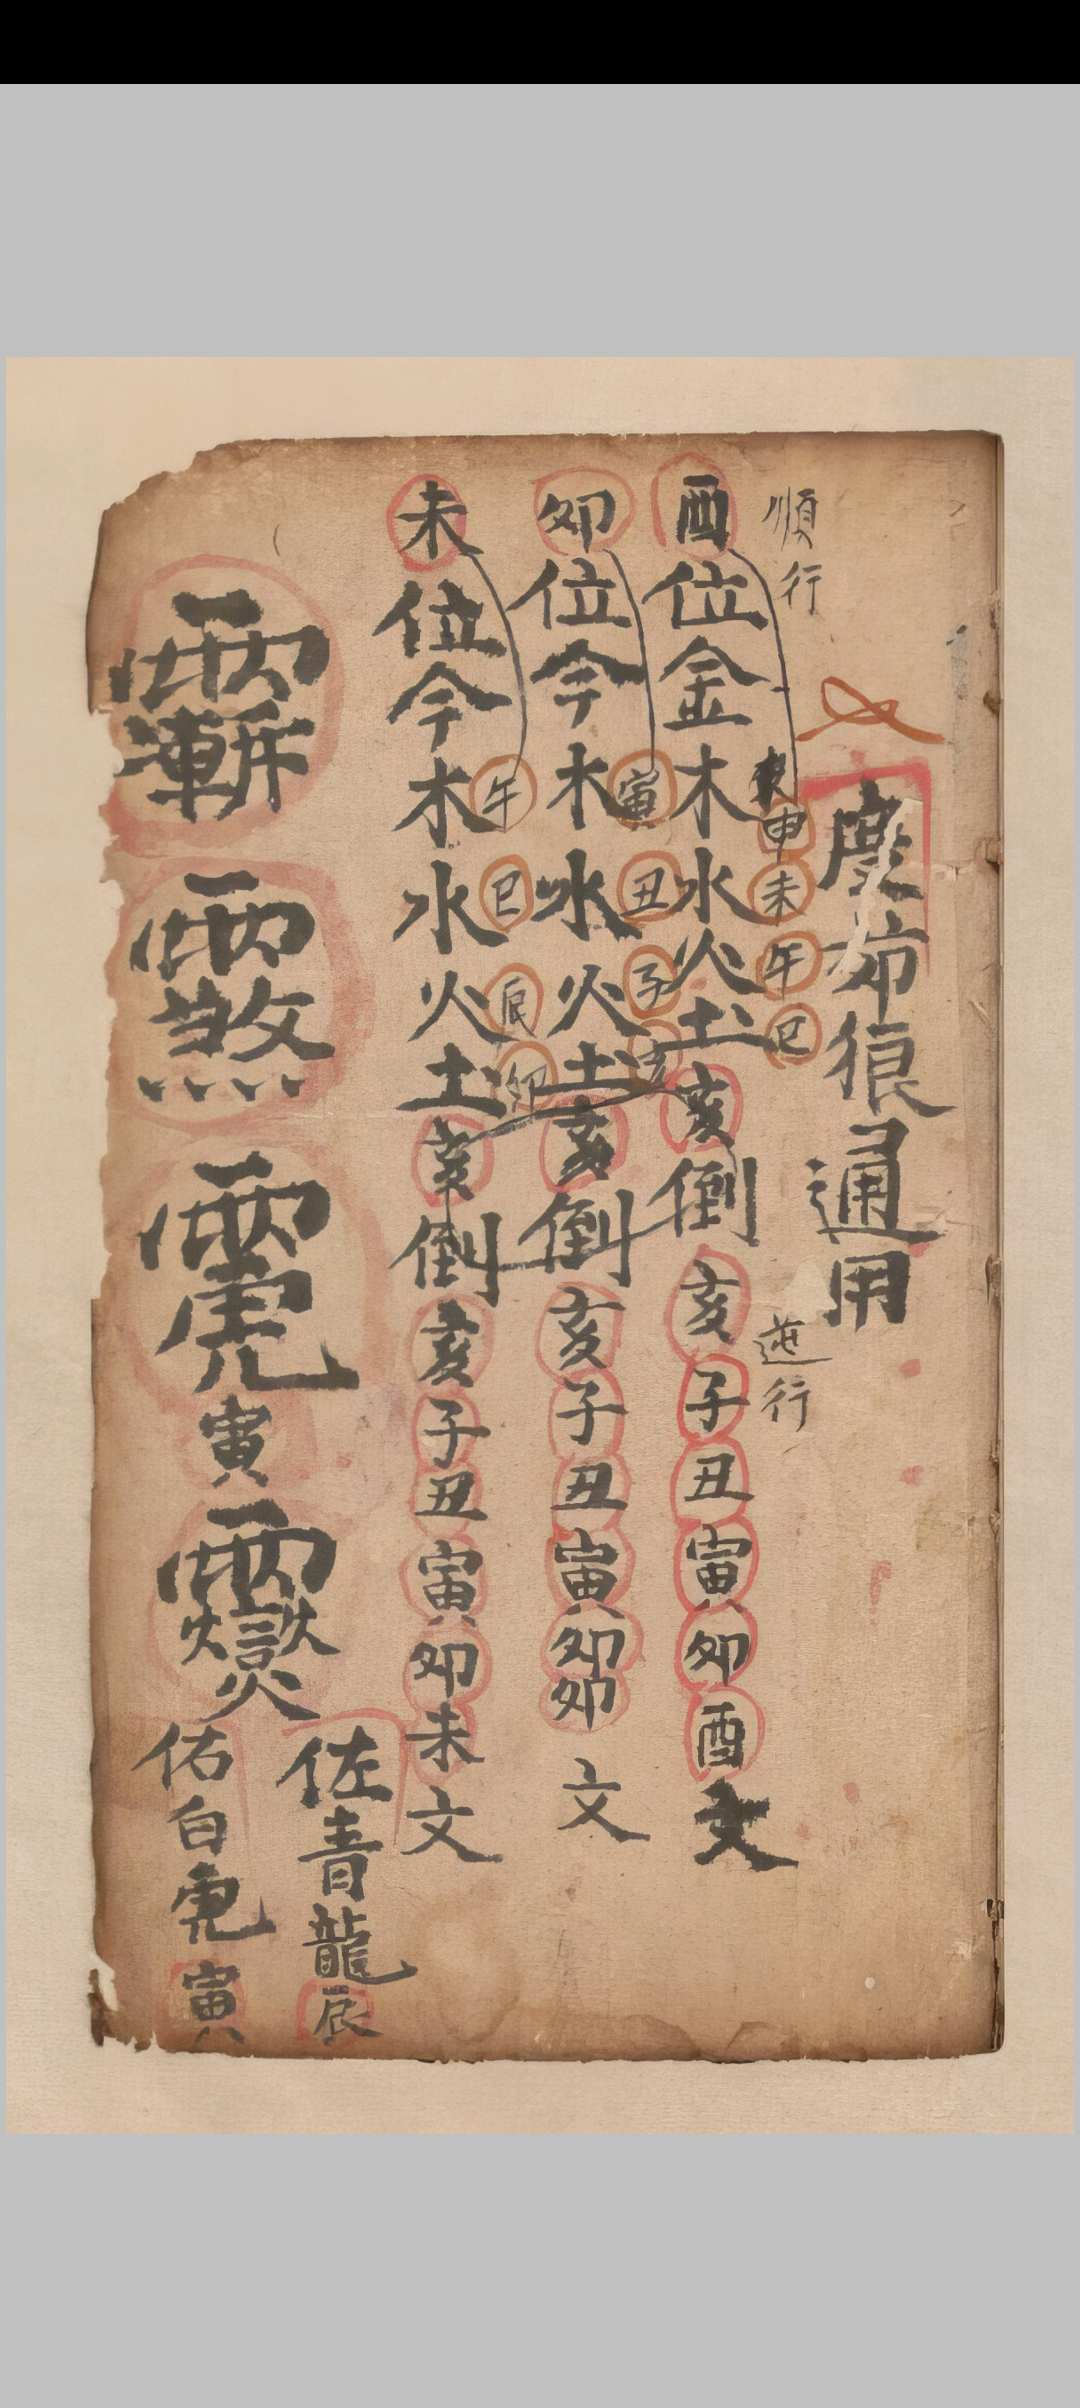 順行
通用
逆行
酉位金木水火土亥倒亥子丑寅卯酉文
申未午巳
卯位今木水火土亥倒亥子丑寅卯卯文
寅丑子亥
未位今木水火土亥倒亥子丑寅卯未文
午巳辰卯
寅
佐青龍辰
佑白虎寅